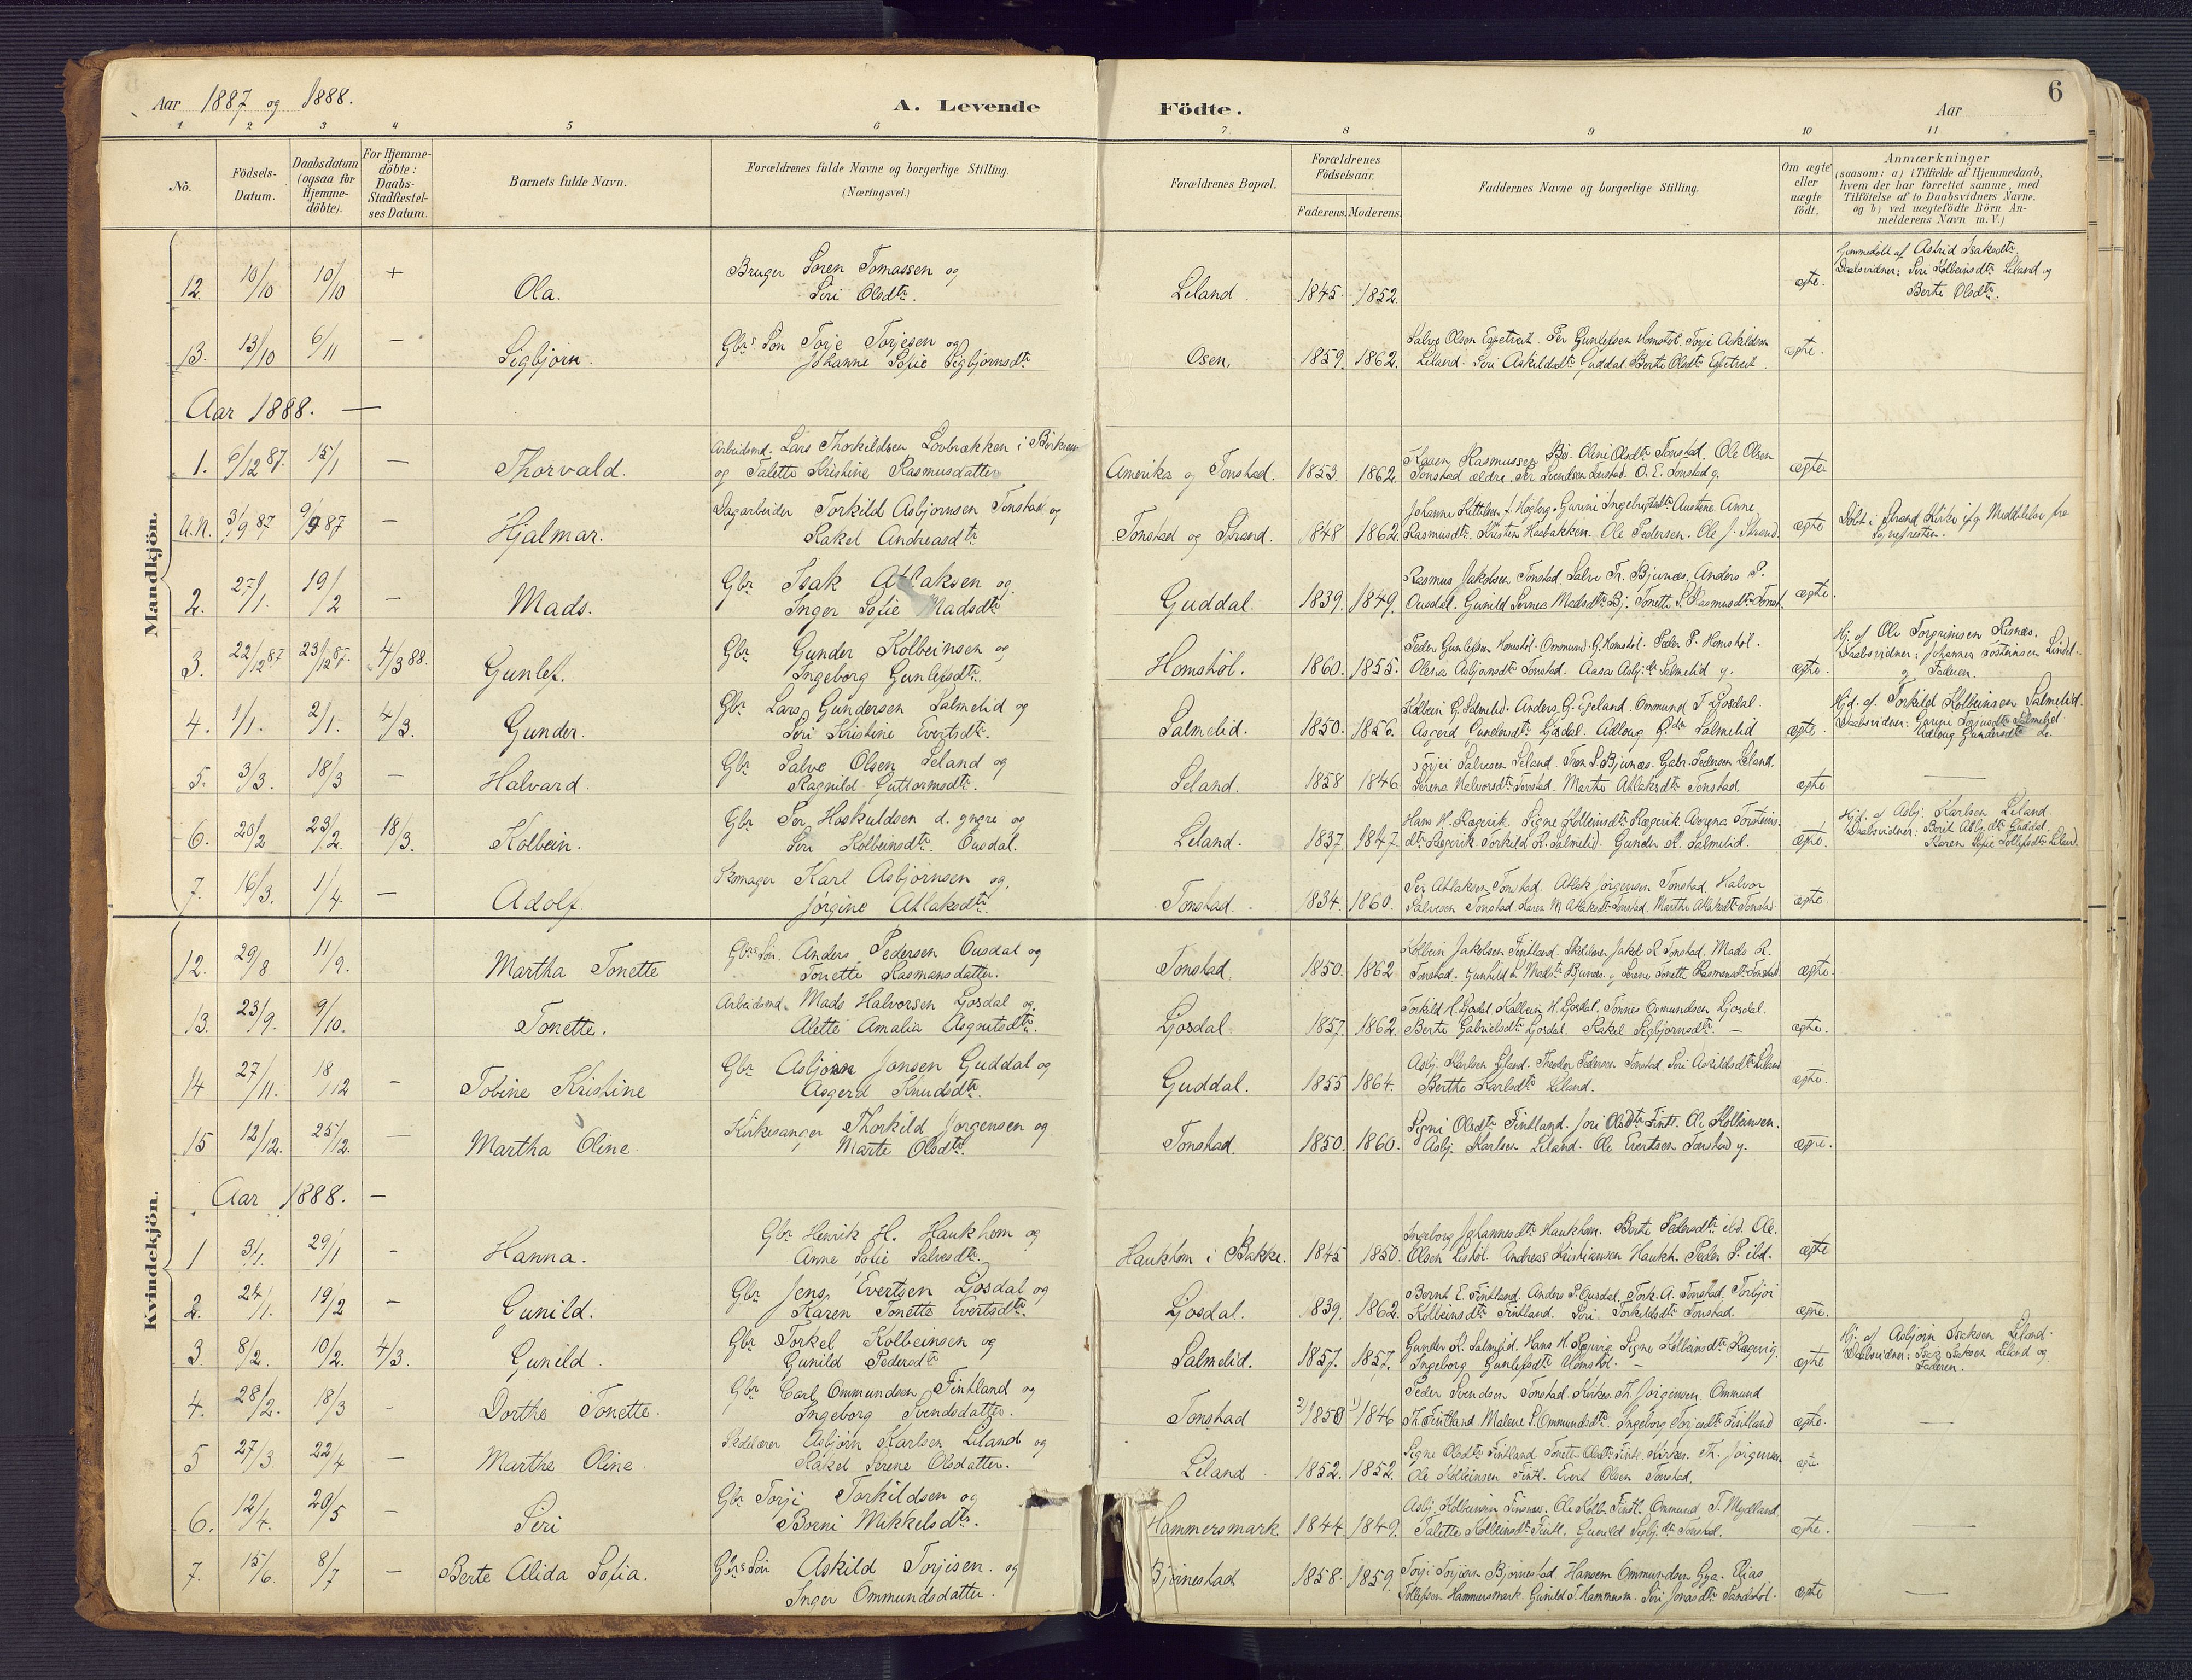 Aar 1887 og 1888.
A. Levende Födte.
Aar
6
1 2 3 4 5 6 7 8 9 10 11
No.
Födsels-Datum.
Daabsdatum (ogsaa for Hjemme-döbte).
For Hjemme-döbte: Daabs-Stadfæstel-ses Datum.
Barnets fulde Navn.
Forældrenes fulde Navne og borgerlige Stilling. (Næringsvei.)
Forældrenes Bopæl.
Forældrenes Födselsaar.
Faderens. Moderens.
Faddernes Navne og borgerlige Stilling.
Om ægte eller uægte födt.
Anmærkninger
(saasom: a) i Tilfælde af Hjemmedaab, hvem der har forrettet samme, med Tilföielse af to Daabsvidners Navne. og b) ved uægtefödte Börn An-melderens Navn m. V.)
Mandkjön.
12. 10/10 10/10 + Ola. Bruger Soren Tomassen og
Siri Olsdtr. Leland. 1845. 1852. ægte.
Hjemmedøbt af Astrid Isaksdtr.
Daabsvidner: Siri Kolbeinsdtr Leland og
Berte Olsdtr.
13. 13/10 6/11 — Sigbjørn. Gbrs Søn Torje Torjesen og
Johanne Sofie Sigbjørnsdtr Osen. 1859. 1862.
Salve Olsen Egetveit. Per Gunlefsen Homstøl. Torje Askildsen
Leland. Siri Askildsdtr Guddal. Berte Olsdtr Egetveit. ægte.
Aar 1888. —
1. 6/12 87. 15/1 — Thorvald. Arbeidsmd. Lars Thorkildsen Lovbrækken i Birkrem
og Talette Kristine Rasmusdatter Amerika og Tonstad. 1853. 1862.
Karen Rasmussen Bø. Olini Olsdtr Tonstad. Ole Olsen
Tonstad ældre. Per Svendsen Tonstad. O. E. Tonstad y. ægte
U.N. 3/9 87 9/9 87 — Hjalmar. Dagarbeider Torkild Asbjørnsen Tonstad og
Rakel Andreasdtr Tonstad og Strand. 1848 1862.
Rasmusdtr. Kristen Haabakken. Ole Pedersen. Ole J. Strand. ægte
Døbt i Strand Kirke ifg. Meddelelse fra
Sognepresten.
2. 27/1. 19/2 — Mads. Gbr Isak Atlaksen og
Inger Sofie Madsdtr Guddal. 1839. 1849.
Rasmus Jakobsen Tonstad. Salve Tr. Bjunes. Anders P.
Ousdal. Gunild Serine Madsdtr Bj. Tonette S. Rasmusdtr Tonst. ægte.
3. 22/12 87 23/12 87. 4/3 88. Gunlef. Gbr Gunder Kolbeinsen og
Ingeborg Gunlefsdtr. Homstøl. 1860. 1855.
Peder Gunlefsen Homstøl. Ommund G. Homstøl. Peder P. Homstøl.
Olena Asbjørnsdtr Tonstad. Aasa Asbj.dtr Salmelid y. ægte.
Hj. af Ole Torgrimsen Risnæs.
Daabsvidner: Johannes Tosteinsen Lindel.
og Faderen.
4. 1/1. 2/1. 4/3. Gunder. Gbr Lars Gundersen Salmelid og
Siri Kristine Evertsdtr. Salmelid. 1850. 1856.
Kolbein G. Salmelid. Anders G. Egeland. Ommund T. Ljosdal.
Asgerd Gundersdtr Ljosdal. Adloug G.dtr Salmelid ægte.
Hjd. af Torkild Kolbeinsen Salmelid.
Daabsvidner: Gurine Torjusdtr Salmelid.
Adloug Gundersdtr do.
5. 3/3. 18/3 — Halvard. Gbr Salve Olsen Leland og
Ragnild Guttormsdtr. Leland. 1858 1846
Torjei Salvesen Leland. Tron S. Bjunes. Gabr. Pedersen Leland.
Serena Halvorsdtr Tonstad. Marthe Atlaksdtr Tonstad. ægte —
6. 20/2 23/2. 18/3. Kolbein. Gbr Per Hoskuldsen d. yngre og
Siri Kolbeinsdtr. Ousdal. Leland. 1837. 1847.
Hans H. Rægevik. Signe Kolbeinsdtr Rægevik Asgena Torsteins-
dtr Rægevik. Torkild K. Salmelid. Gunder K. Salmelid. ægte.
Hjd. af Asbj. Karlsen Leland.
Daabsvidner: Berit Asbj.dtr Guddal.
Karen Sofie Tollefsdtr Leland.
7. 16/3. 1/4 — Adolf. Skomager Karl Asbjørnsen og
Jørgine Atlaksdtr. Tonstad. 1834. 1860.
Per Atlaksen Tonstad. Atlak Jørgensen Tonstad. Halvor
Salvesen Tonstad. Karen M. Atlaksdtr Tonstad. Marthe Atlaksdtr Tonstad. ægte.
Kvindekjön.
12. 29/8. 11/9. Martha Tonette Gbrs Søn. Anders Pedersen Ousdal og
Tonette Rasmusdatter. Tonstad. 1850. 1862
Kolbein Jakobsen Fintland. Skolelærer Jakob R. Tonstad. Mads R.
Tonstad. Gunhild S. Madsdtr Bjunes. Serine Tonett Rasmusdtr Tonstad. ægte.
13. 23/9. 9/10. Tonette. Arbeidsmd. Mads Halvorsen Ljosdal og
Alette Amalia Asgautsdtr. Ljosdal. 1857. 1862.
Torkild H. Ljosdal Kolbein H. Ljosdal. Tønnes Ommundsen Ljosdal.
Berte Gabrielsdtr Ljosdal. Rakel Sigbjørnsdtr. — ægte.
14 27/11. 18/12 — Tobine Kristine Gbr Asbjørn Jonsen Guddal og
Asgerd Knudsdtr. Guddal. 1855 1864.
Asbj. Karlsen Leland. Theodor Pedersen Tonstad. Siri Askildsdtr Leland
Berthe Karlsdtr Leland. ægte.
15 12/12. 25/12. — Martha Oline Kirkesanger Thorkild Jørgensen og
Marte Olsdtr. Tonstad. 1850. 1860.
Signi Olsdtr Fintland. Jori Olsdtr Fintl. Ole Kolbeinsen.
Asbj. Karlsen Leland. Ole Evertsen Tonstad y. ægte.
Aar 1888. —
1 3/1. 29/1 — Hanna. Gbr Henrik H. Haukhom og
Anne Sofie Salvesdtr. Haukhom i Bakke. 1845 1850.
Ingeborg Johannesdtr Haukhom. Berte Pedersdtr ibd. Ole
Olsen Lishøl. Andreas Kristiansen Haukh. Peder P. ibd. ægte
2. 24/1. 19/2 — Gunild. Gbr Jens Evertsen Ljosdal og
Karen Tonette Evertsdtr. Ljosdal. 1839. 1862.
Bernt E. Fintland. Anders P. Ousdal. Tork. A. Tonstad. Torbjør
Kolbeinsdtr Fintland. Siri Torkildsdtr Tonstad. ægte.
3 8/2. 10/2. 4/3. Gunild. Gbr Torkel Kolbeinsen og
Gunild Pedersdtr Salmelid. 1857. 1857.
Gunder K. Salmelid. Hans H. Rægevig. Signe Kolbeinsdtr Rægevig.
Ingeborg Gunlefsdtr Homstøl. — ægte
Hj. af Asbjørn Isaksen Leland.
Daabsvidner: Isak Isaksen Leland og
Faderen.
4. 28/2. 18/3 — Dorthe Tonette. Gbr Carl Ommundsen Fintland og
Ingeborg Svendsdatter. Tonstad 2) 1850 1) 1846
Peder Svendsen Tonstad. Kirkes. Th. Jørgensen. Ommund
Th. Fintland. Malene S. Ommundsdtr. Ingeborg Torjesdtr Fintland ægte. —
5 27/3. 22/4 — Marthe Oline. Skolelærer Asbjørn Karlsen Leland og
Rakel Serene Olsdatter. Leland. 1852. 1852.
Signe Olsdtr Fintland Tonette Olsdtr Fintl. Kirkes. Th. Jørgensen
Ole Kolbeinsen Fintl. Evert Olsen Tonstad. ægte
6. 12/4. 20/5 — Siri Gbr Torji Torkildsen og
Borni Mikkelsdtr. Hammersmark. 1844. 1849.
Asbj. Kolbeinsen Finsnes. Ole Kolb. Fintl. Ommund T. Mydland
Talette Kolbeinsdtr Fintl. Gunild Sigbj.dtr Tonstad. ægte. —
7. 15/6. 8/7 — Berte Alida Sofia. Gbrs Søn Askild Torjisen. og
Inger Ommundsdatter. Bjørnestad 1858. 1859.
Torji Torjisen Bjørnestad. Hansem Ommundsen Gya. Elias
Tollefsen Hammersmark. Gunild T. Hammersm. Siri Jonasdtr Sandstøl. ægte —